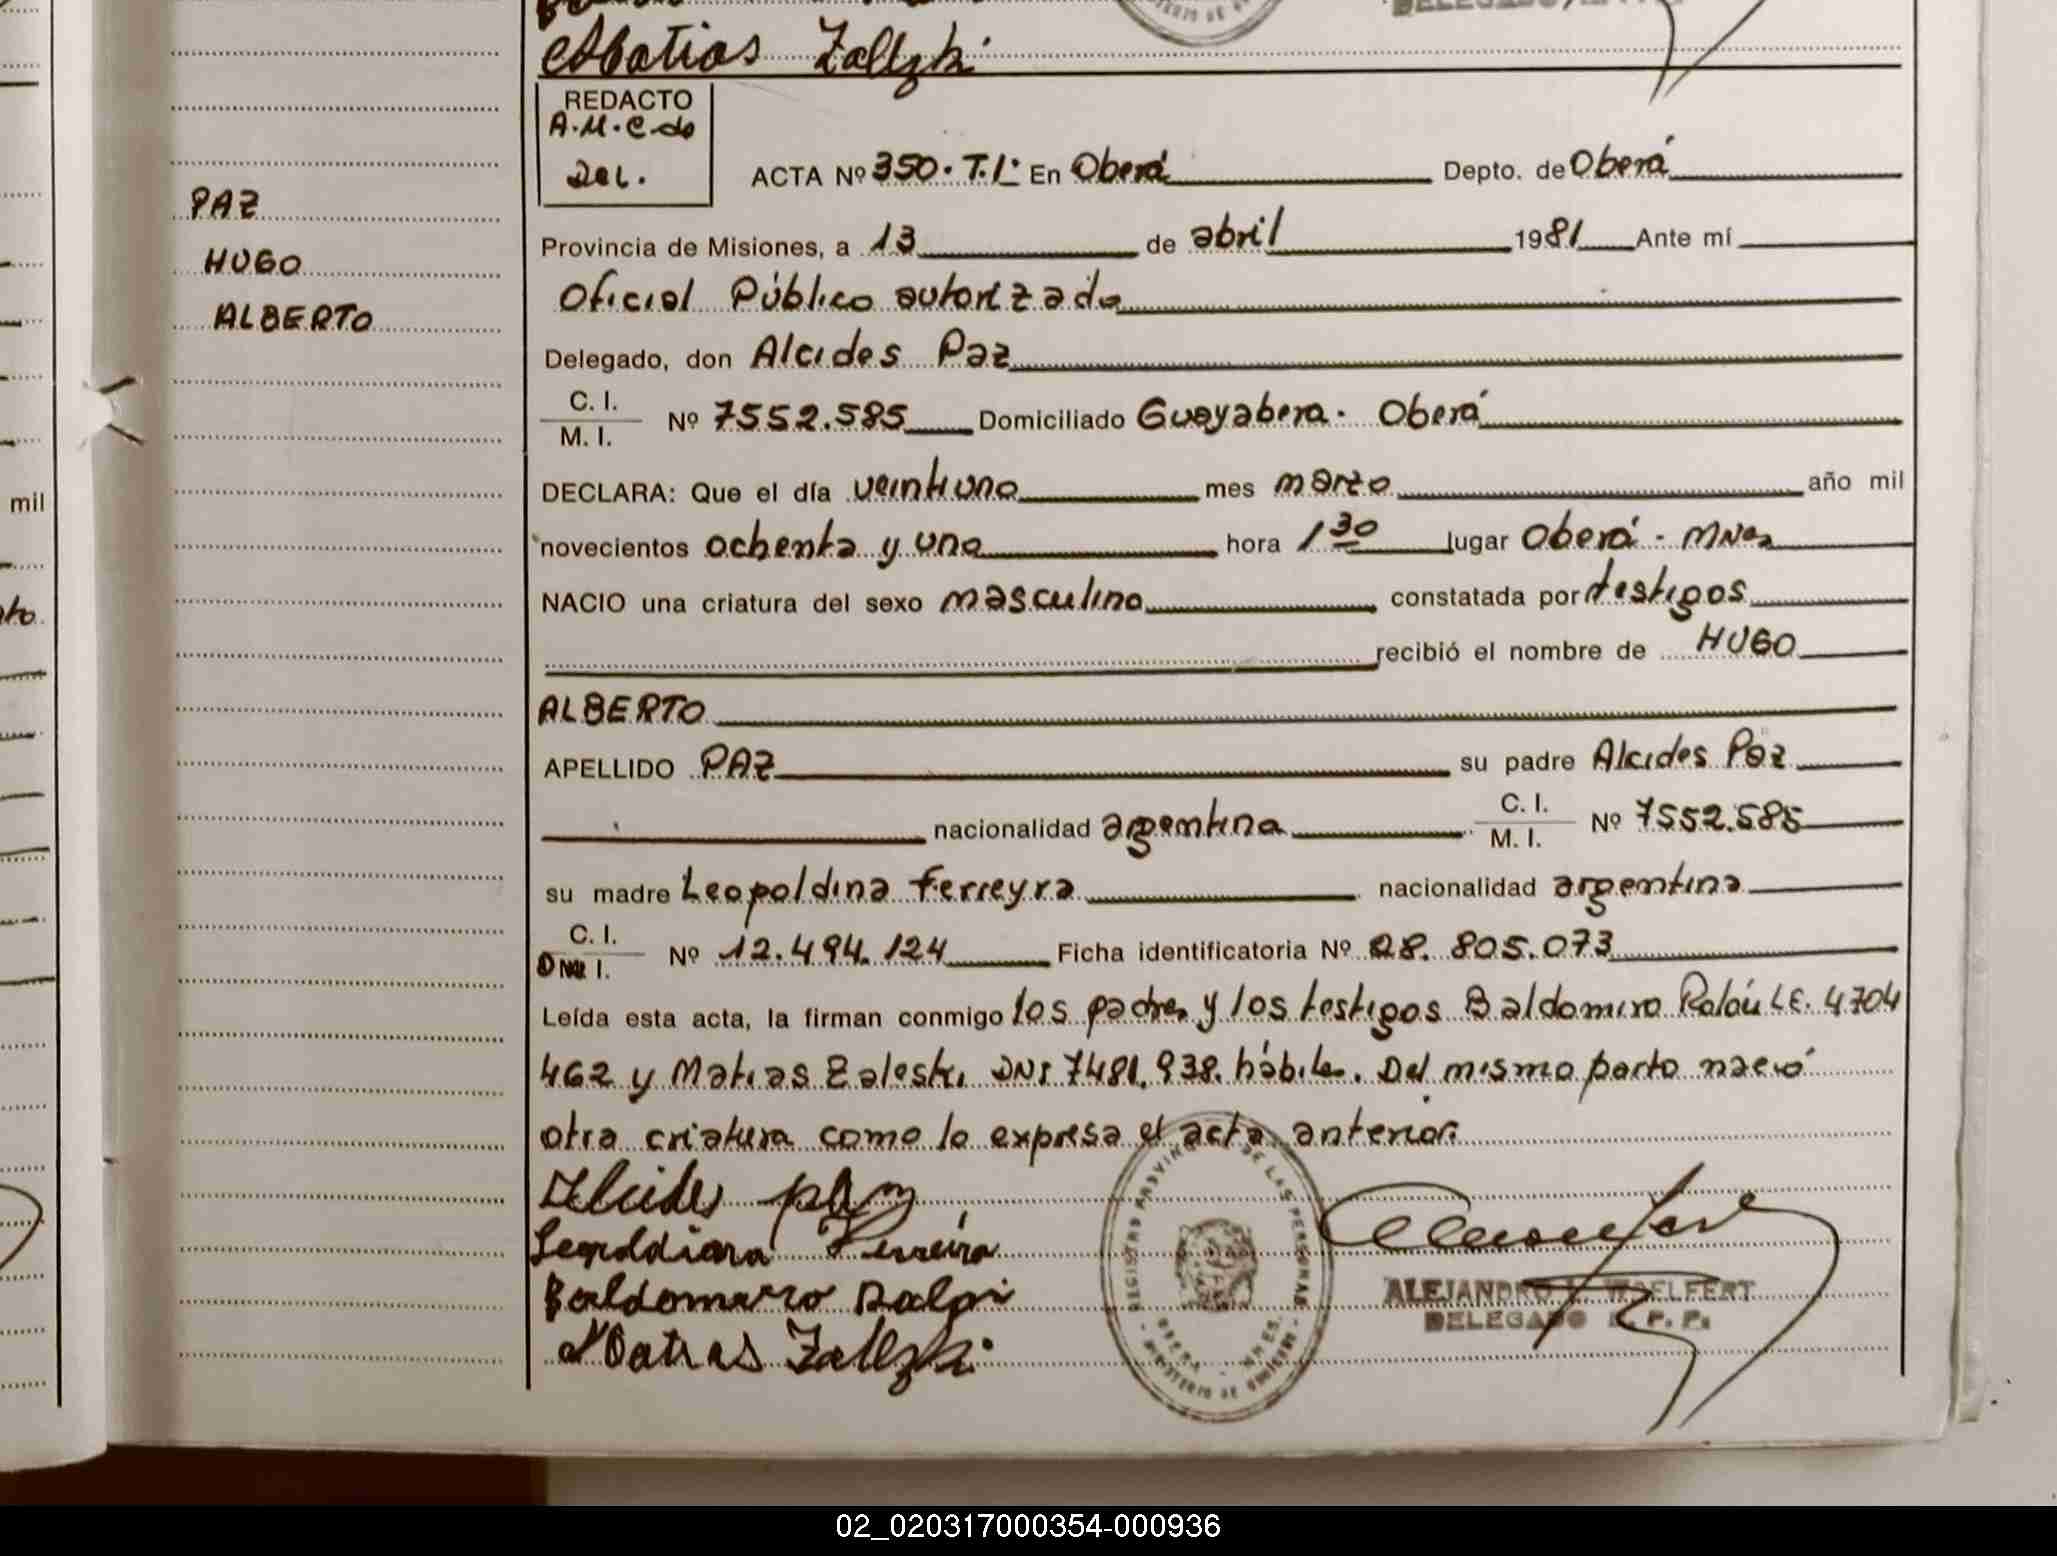 Matias Zallzki
REDACTO
A.M.C de
Del.
ACTA Nº 350. T.1º En Oberá Depto. de Oberá
PAZ
HUGO
ALBERTO
Provincia de Misiones, a 13 de abril 1981 Ante mí
Oficial Público autorizado
Delegado, don Alcides Paz
C. I.
M. I.
Nº 7552.585 Domiciliado Guayabera. Oberá
DECLARA: Que el día veintiuno mes marzo año mil
novecientos ochenta y uno hora 1 30 lugar Oberá - Mnes
NACIO una criatura del sexo masculino constatada por testigos
recibió el nombre de HUGO
ALBERTO
APELLIDO PAZ su padre Alcides Paz
nacionalidad argentina C. I. M. I. Nº 7552.585
su madre Leopoldina Ferreyra nacionalidad argentina
C. I.
DNI I.
Nº 12.494.124 Ficha identificatoria Nº 28.805.073
Leída esta acta, la firman conmigo los padres y los testigos Baldomiro Rolón LE. 4704
462 y Matias Zaleski DNI 7481.938. hábiles. Del mismo parto nació
otra criatura como lo expresa el acta anterior.
Alcides paz
Leopoldina Ferreira
Baldomero
Matias Zallzki
REGISTRO PROVINCIAL DE LAS PERSONAS
OBERA - MNES.
MINISTERIO DE GOBIERNO
ALEJANDRO WOELFERT
DELEGADO R. P. P.
mil
02_020317000354-000936